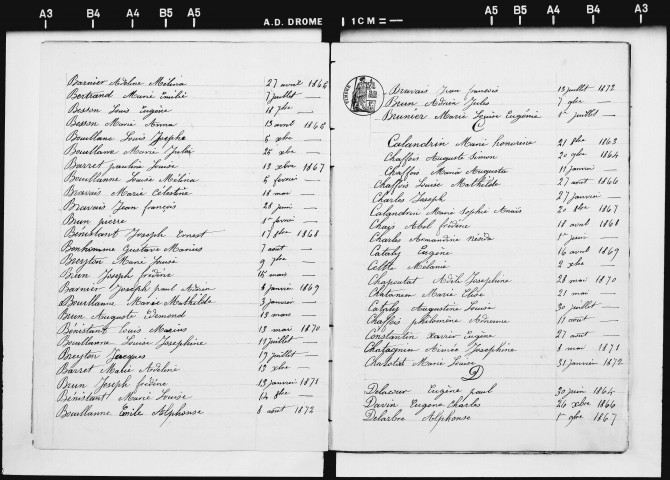 A3 B4 A4 B5 A5 A.D. DROME 1 CM = A5 B5 A4 B4 A3
Barnier Adeline Mélina 27 avril 1865
Bertrand Marie Emilie 7 juillet —
Besson Louis Eugène 18 7bre —
Besson Marie Anna 13 avril 1866
Bouillane Louis Joseph 6 xbre —
Bouillane Marie Julie 25 xbre —
Barret pauline Louise 13 xbre 1867
Bouillanne Louise Mélina 6 février —
Bravais Marie Célestine 18 mai —
Bravais Jean françois 28 juin —
Brun pierre 1er février —
Bénistant Joseph Ernest 17 8bre 1868
Bonhomme Gustave Marius 7 août —
Breyton Marie Louise 9 7bre —
Brun Joseph frédéric 15 mars —
Barnier Joseph paul Adrien 8 janvier 1869
Bouillanne Marie Mathilde 3 janvier —
Brun Auguste Edmond 13 mars —
Bénistant Louis Marius 13 mai 1870
Bouillanne Louise Joséphine 11 juillet —
Breyton Jacques 19 juillet —
Barret Marie Adeline 13 xbre —
Brun Joseph frédéric 13 janvier 1871
Bénistant Marie Louise 14 8bre —
Bouillanne Emile Alphonse 8 août 1872
Bravais Jean françois 13 juillet 1872
Brun Adrien Jules 7 9bre —
Brunier Marie Louise Eugénie 1er juillet —
C
Calandrin Marie honorine 21 8bre 1863
Chaffois Auguste Simon 20 9bre 1864
Chaffois Marie Augusta 11 janvier —
Chaffois Louise Mathilde 27 août 1866
Charles Joseph 27 janvier —
Calandrin Marie Sophie Anaïs 20 8bre 1867
Chaix Abel frédéric 18 avril 1868
Charles Armandine 1er juin —
Cataly Eugène 16 avril 1869
Mélanie 2 xbre —
Chapoutat Adèle Joséphine 28 mai 1870
Chatanien Marie Elise 21 mai —
Cataly Augustine Louise 30 juillet —
Chaffois philomène 11 août —
Constantin Xavier Eugène 27 août —
Chatagnen Aimée Joséphine 8 mai 1871
Marie Louise 31 janvier 1872
D
Delacour Eugène paul 30 juin 1864
Davin Eugène Charles 26 xbre 1866
Delarbre Alphonse 1er 9bre 1867